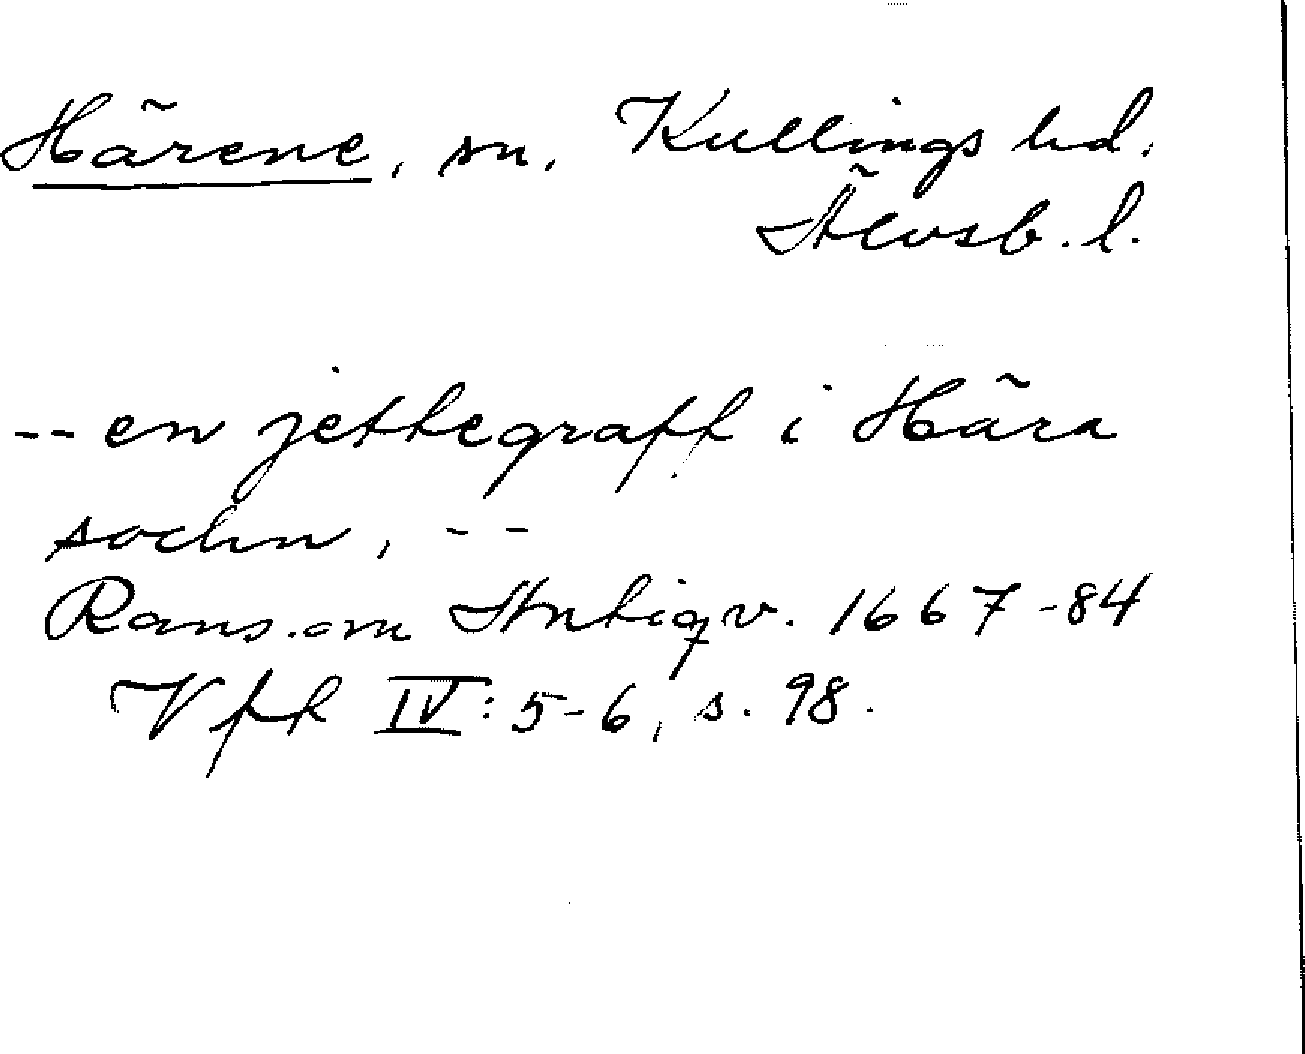 Härene, sn. Kullings hd.
Älvsb. l.
-- en jettegraff i Hära
sochn, --
Rans. om Antiqv. 1667-84
Vft IV: 5-6, s. 98.